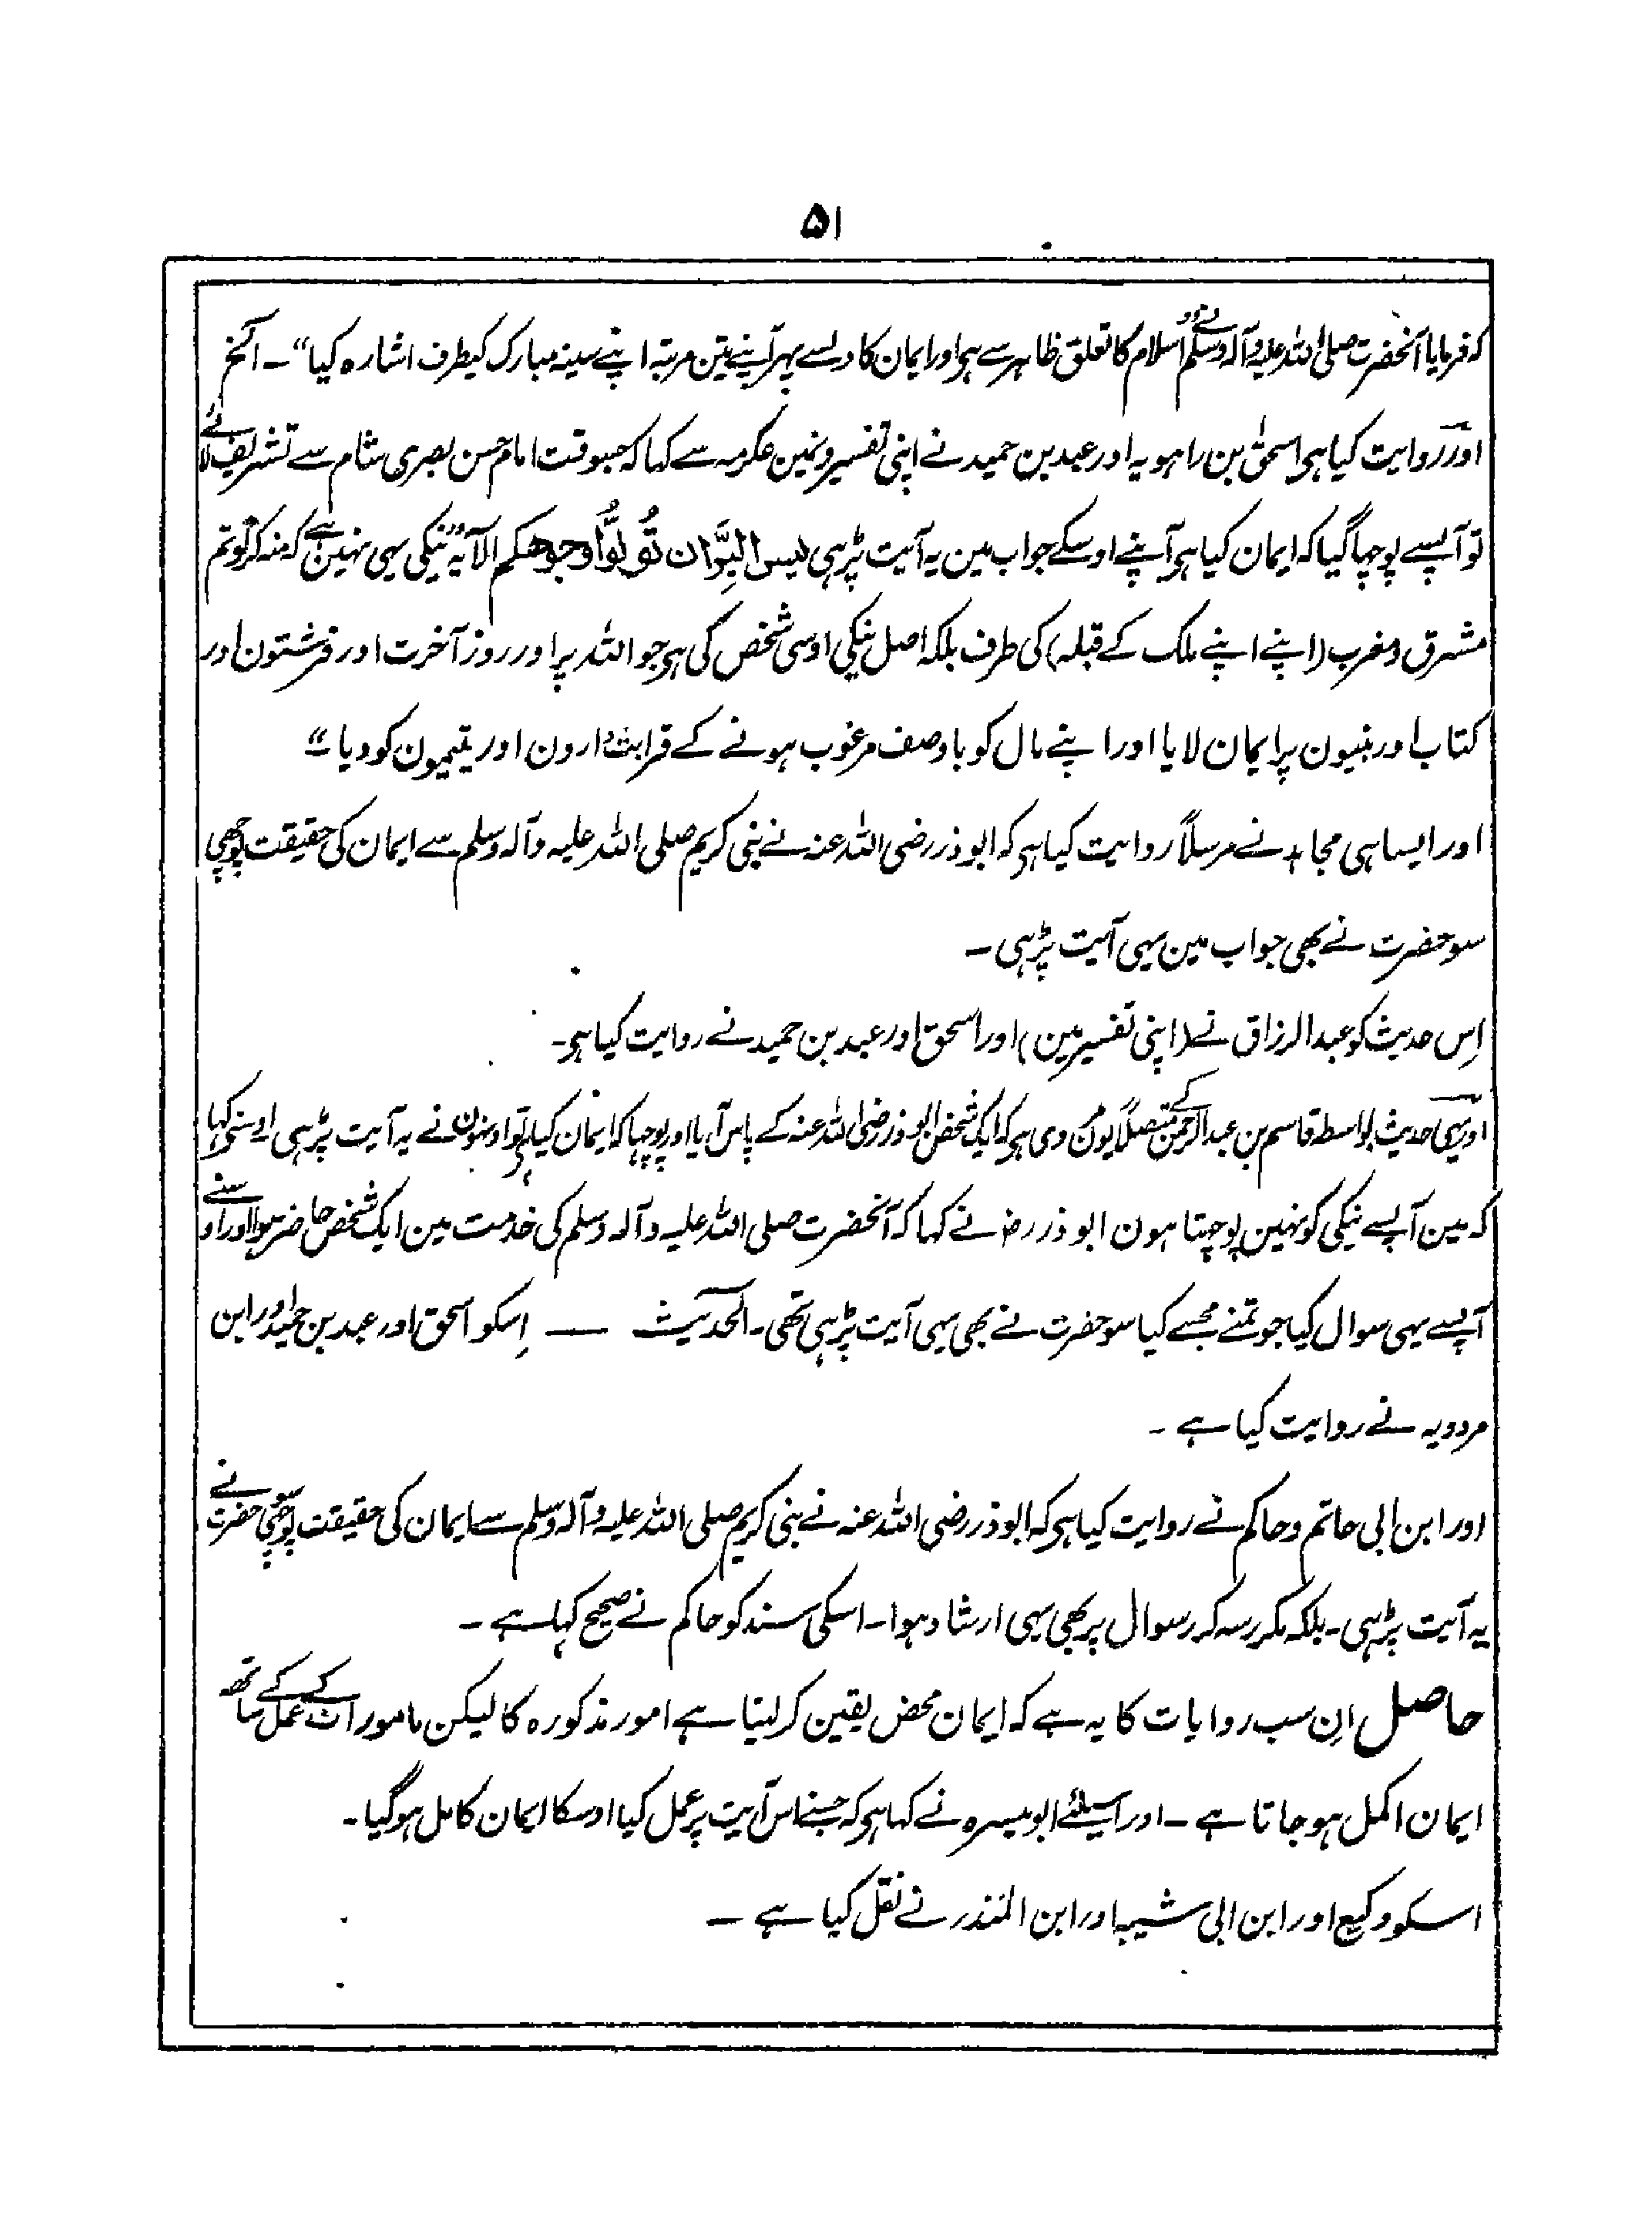 ۵۱
کہ فرمایا آنحضرت صلی اللہ علیہ وآلہ وسلم نے ”اسلام کا تعلق ظاہر سے ہی اور ایمان کا دلسے پہر آپنے تین مرتبہ اپنے سینہ مبارک کیطرف اشارہ کیا“ ۔ الخ
اور روایت کیا ہی اسحٰق بن راہویہ اور عبد بن حمید نے اپنی تفسیرونمین عکرمہ سے کہا کہ جسوقت امام حسن بصری شام سے تشریف لائے
تو آپسے پوچہا گیا کہ ایمان کیا ہی آپنے اوسکے جواب مین یہ آیت پڑہی لیس البِرَّ ان تُولُّوا وجوھکم الآیہ ”نیکی یہی نہین ہے کہ منہ کرلو تم
مشرق ومغرب (اپنے اپنے ملک کے قبلہ) کی طرف بلکہ اصل نیکی اوسی شخص کی ہی جو اللہ پر اور روز آخرت اور فرشتون اور
کتاب اور نبیون پر ایمان لایا اور اپنے مال کو باوصف مرغوب ہونے کے قرابتدارون اور یتیمون کو دیا“
اور ایسا ہی مجاہد نے مرسلاً روایت کیا ہی کہ ابوذر رضی اللہ عنہ نے نبی کریم صلی اللہ علیہ وآلہ وسلم سے ایمان کی حقیقت پوچہی
سو حضرت نے بھی جواب مین یہی آیت پڑہی ۔
اِس حدیث کو عبد الرزاق نے (اپنی تفسیر مین) اور اسحق اور عبد بن حمید نے روایت کیا ہی۔
اور یہی حدیث بواسطہ قاسم بن عبد الرحمن کے متصلاً یون مروی ہی کہ ایک شخص ابوذر رضی اللہ عنہ کے پاس آیا اور پوچہا کہ ایمان کیا ہی تو اونہون نے یہ آیت پڑہی اوسنے کہا
کہ مین آپسے نیکی کو نہین پوچہتا ہون ابوذر رضہ نے کہا کہ آنحضرت صلی اللہ علیہ وآلہ وسلم کی خدمت مین ایک شخص حاضر ہوا اور اوسنے
آپسے یہی سوال کیا جو تمنے مجہسے کیا سو حضرت نے بھی یہی آیت پڑہی تھی ۔ الحدیث — اِسکو اسحق اور عبد بن حمید اور ابن
مردویہ نے روایت کیا ہے ۔
اور ابن ابی حاتم وحاکم نے روایت کیا ہی کہ ابوذر رضی اللہ عنہ نے نبی کریم صلی اللہ علیہ وآلہ وسلم سے ایمان کی حقیقت پوچھی حضرت نے
یہ آیت پڑہی ۔ بلکہ مکرر سہ کرر سوال پر بھی یہی ارشاد ہوا ۔ اسکی سند کو حاکم نے صحیح کہا ہے ۔
حاصل اِن سب روایات کا یہ ہے کہ ایمان محض یقین کر لینا ہے امور مذکورہ کا لیکن مامورات کے عمل کے ساتھ
ایمان اکمل ہو جاتا ہے ۔ اور اسیلئے ابو میسرہ نے کہا ہی کہ جسنے اس آیت پر عمل کیا اوسکا ایمان کامل ہو گیا ۔
اسکو وکیع اور ابن ابی شیبہ اور ابن المنذر نے نقل کیا ہے ۔